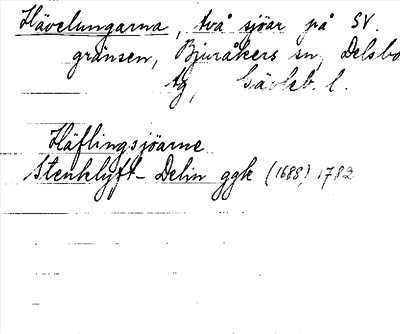 Hävelungarna, två sjöar på SV.
gränsen, Bjuråkers sn, Delsbo
tg, Gävleb. l.
Häflingsjöarne
Stenklyft- Delin ggk (1688) 1782